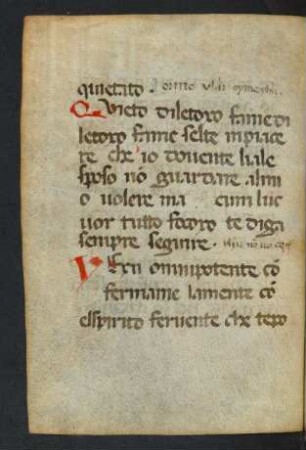 quietato .
Quieto diletoro fame di
letoro fame selte inpiace
re che io douente liale
sposo nō guardare almi
o uolere ma cum luc
uor tutto focoro te diga
sempre seguire .
Vexu omnipotente cō
fermame lamente cō
elspirito feruente che tepo